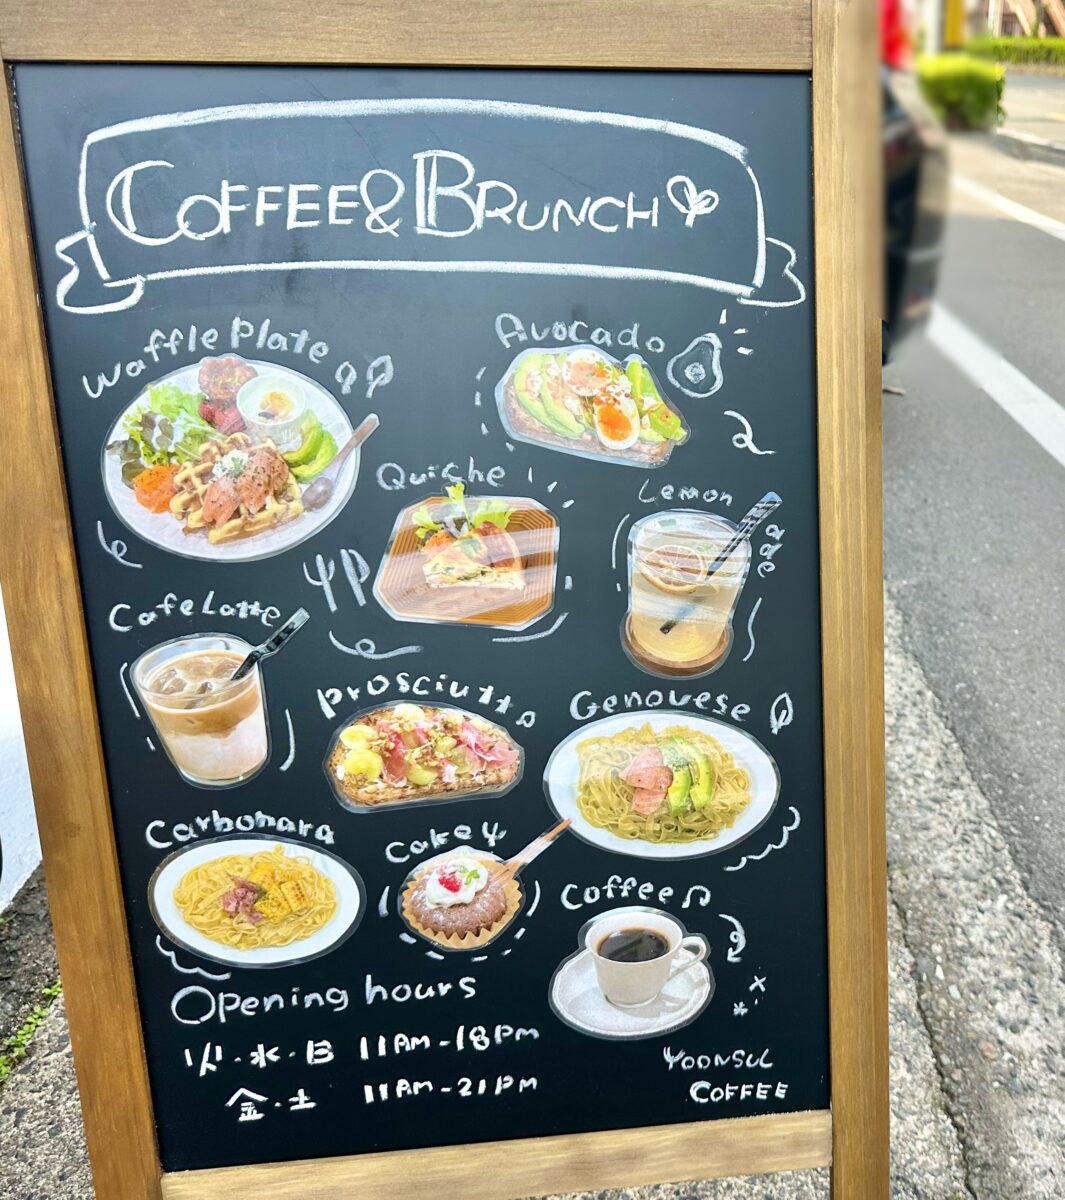 COFFEE&BRUNCH
Waffle Plate
Avocado
Quiche
Lemon
Cafe Latte
Prosciutto
Genovese
Carbonara
Cake
Coffee
Opening hours
水・日 11AM-18PM
金・土 11AM-21PM
YOONSUL
COFFEE